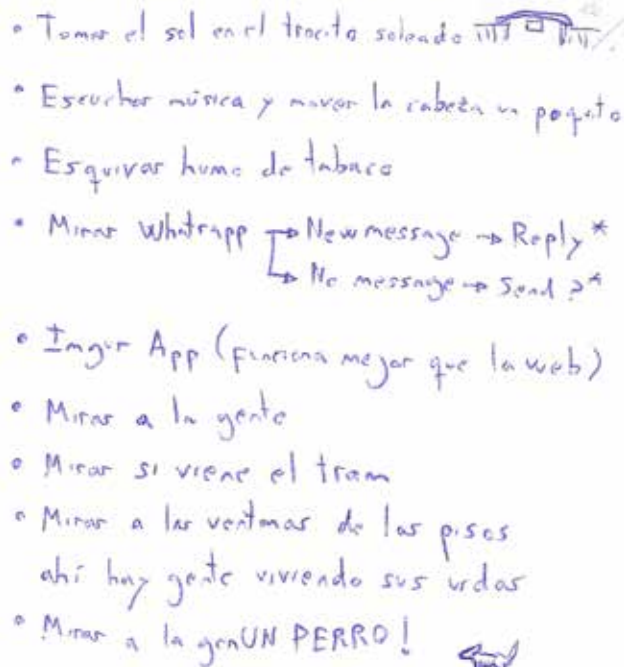 • Tomar el sol en el trocito soleado
• Escuchar música y mover la cabeza un poquito
• Esquivar humo de tabaco
• Mirar Whatsapp → New message → Reply*
→ No message → Send?*
• Imgur App (funciona mejor que la web)
• Mirar a la gente
• Mirar si viene el tram
• Mirar a las ventanas de los pisos
ahí hay gente viviendo sus vidas
• Mirar a la genUN PERRO!